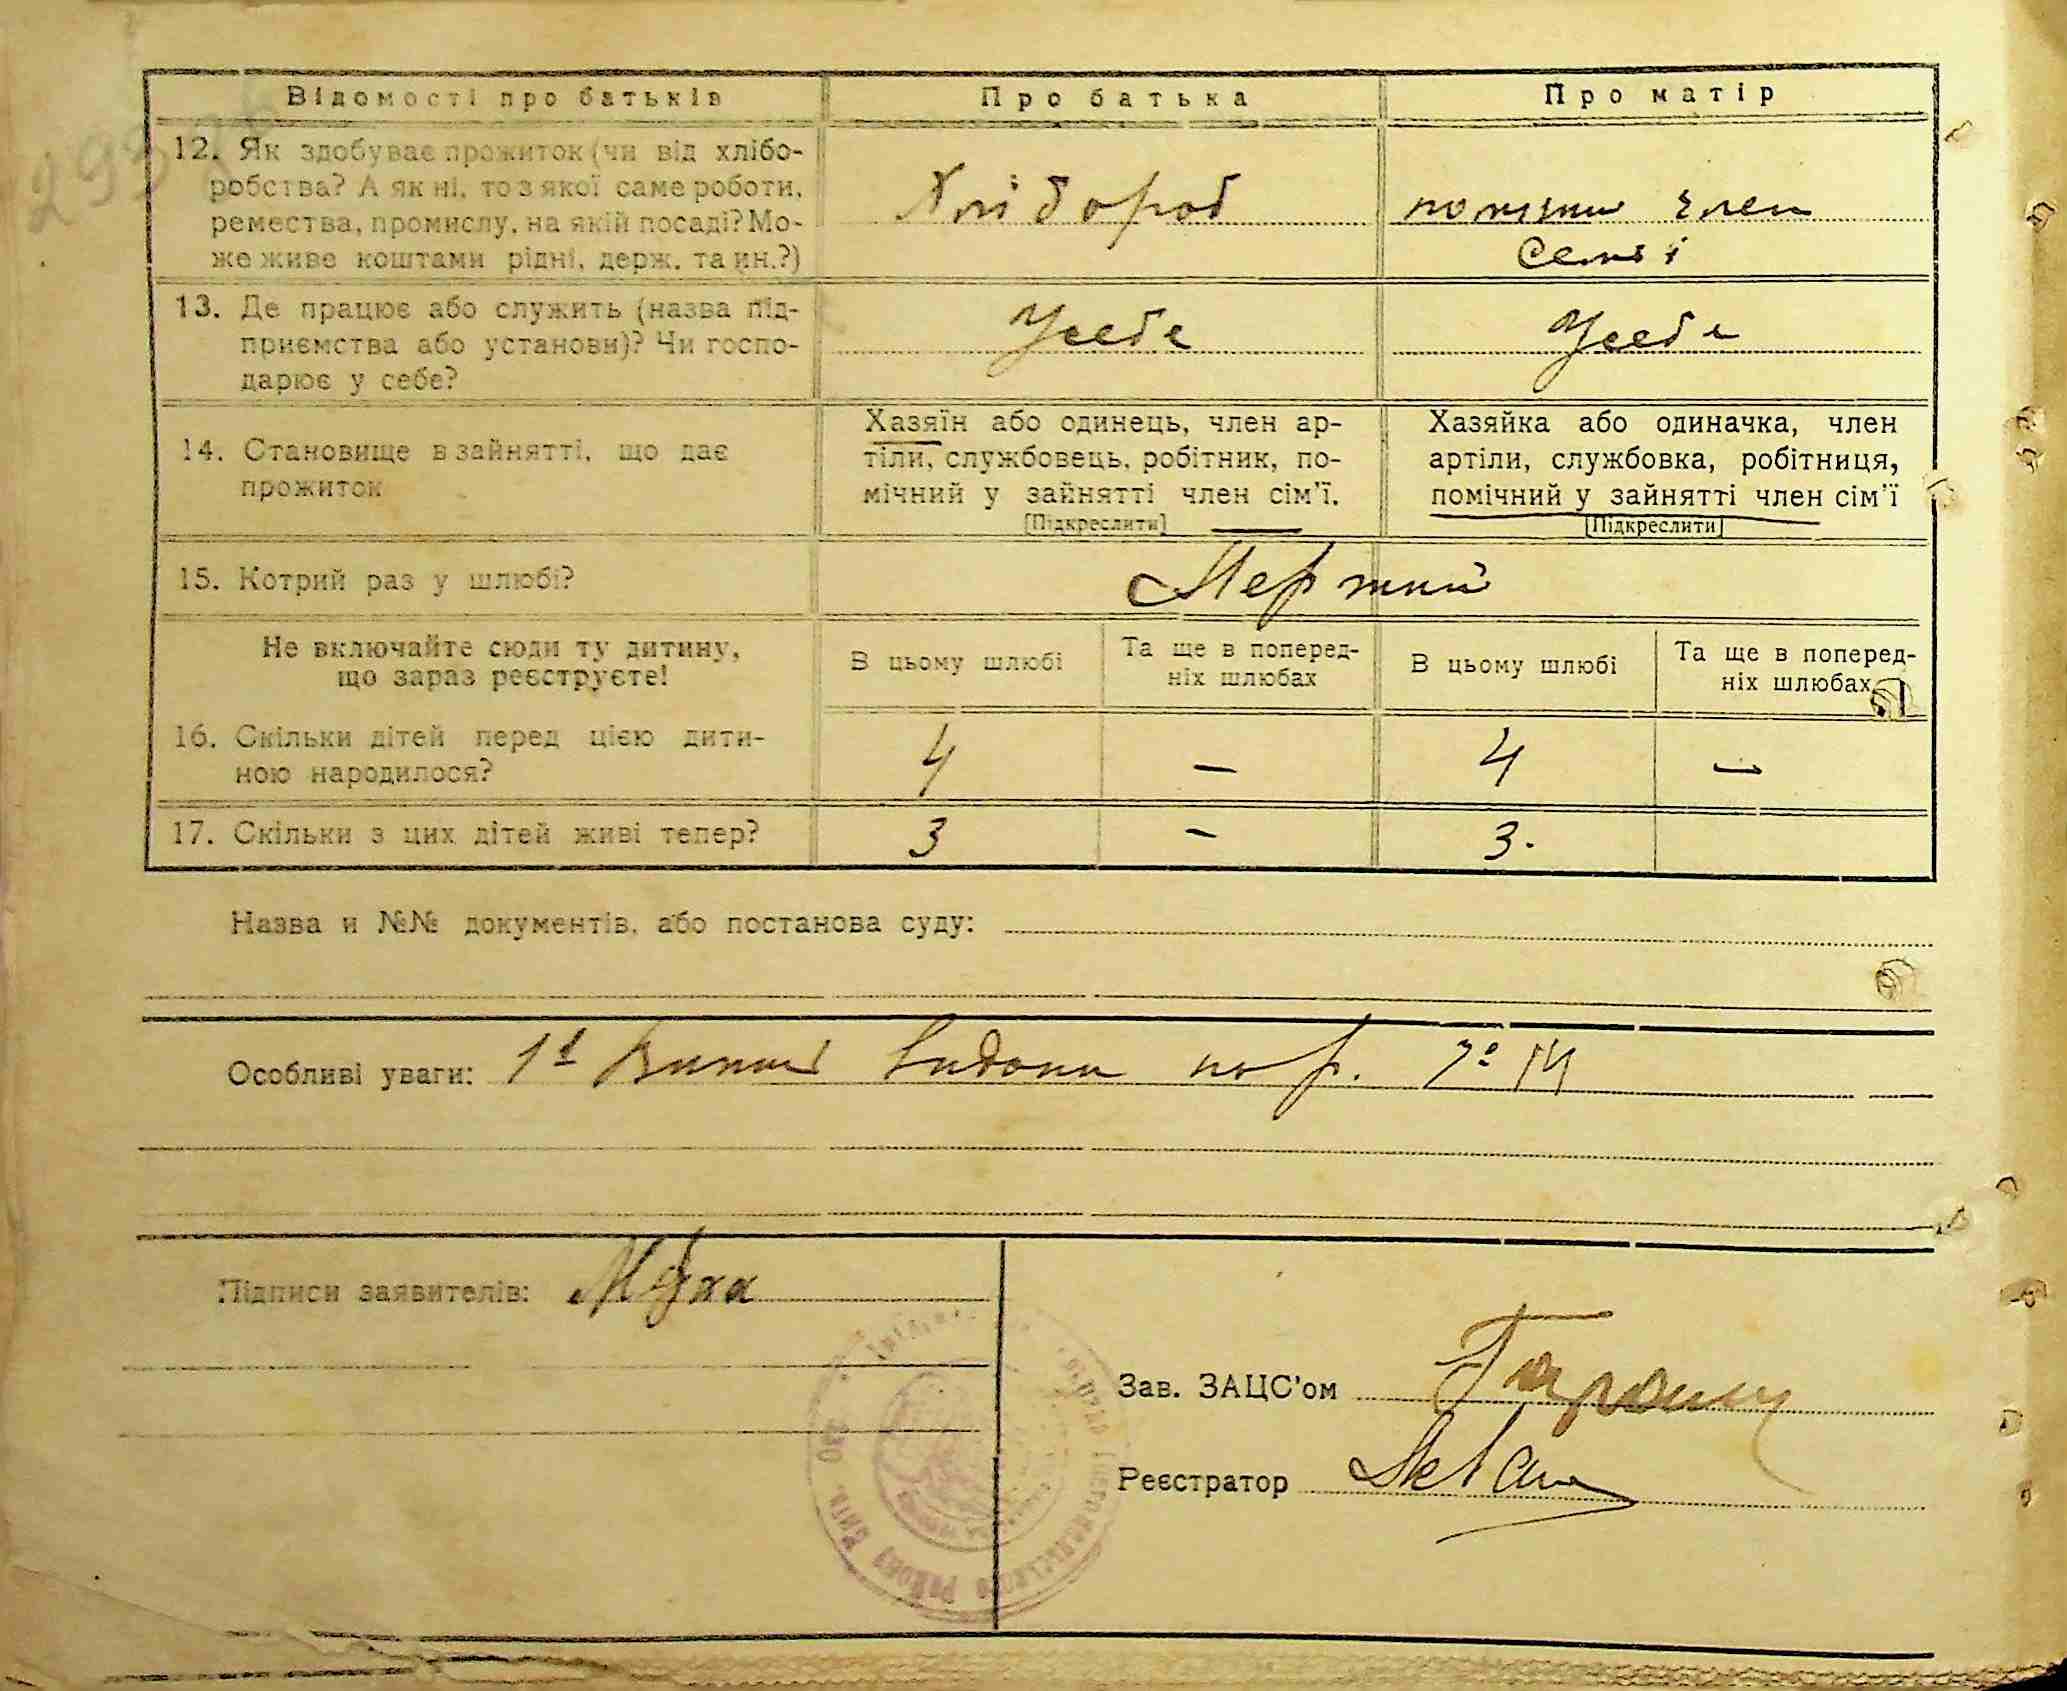 Відомості про батьків
Про батька
Про матір
12. Як здобуває прожиток (чи від хлібо-
робства? А як ні, то з якої саме роботи,
ремества, промислу, на якій посаді? Мо-
же живе коштами рідні, держ. та ин.?)
Хлібороб
член
семьї
13. Де працює або служить (назва під-
приємства або установи)? Чи госпо-
дарює у себе?
У себе
У себе
14. Становище в зайнятті, що дає
прожиток
Хазяїн або одинець, член ар-
тіли, службовець, робітник, по-
мічний у зайнятті член сім'ї.
[Підкреслити]
Хазяйка або одиначка, член
артіли, службовка, робітниця,
помічний у зайнятті член сім'ї
[Підкреслити]
15. Котрий раз у шлюбі?
Не включайте сюди ту дитину,
що зараз реєструєте!
В цьому шлюбі
Та ще в поперед-
ніх шлюбах
В цьому шлюбі
Та ще в поперед-
ніх шлюбах
16. Скільки дітей перед цією дити-
ною народилося?
4
—
4
—
17. Скільки з цих дітей живі тепер?
3
—
3.
Назва и №№ документів, або постанова суду:
Особливі уваги:
Підписи заявителів:
Зав. ЗАЦС'ом
Реєстратор